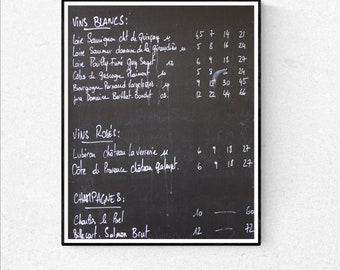 VINS BLANCS:
Loire Sauvignon Cht de Quinçay 45 7 14 21
Loire Saumur domaine de la 5 8 16 24
Loire Pouilly-Fumé Guy Saget 6 9 18 27
Côtes de Gascogne Plaimont 5 8 16 24
Bourgogne 9 13 30 45
Domaine 12 22 44 66
VINS ROSÉS:
Lubéron château La Verrerie 6 9 18 27
Côte de Provence château 6 9 18 27
CHAMPAGNES:
Charles le Bel 10 — 60
Billecart-Salmon Brut 12 — 72